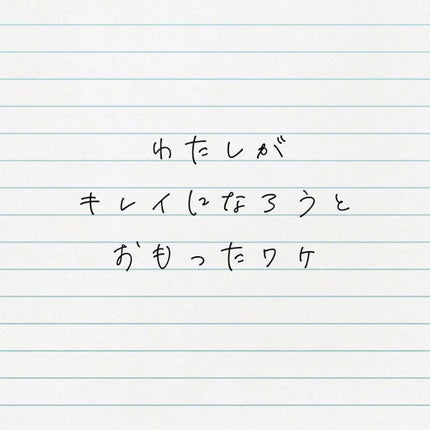 わたしが
キレイになろうと
おもったワケ